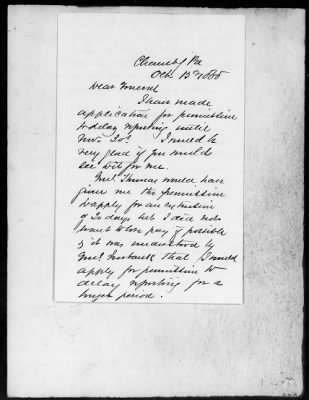 Chamb'g Pa
Oct. 15th 1885
Dear General
I have made
application for permission
to delay reporting until
Nov. 30th. I would be
very glad if you would
see to it for me.
Genl. Thomas would have
given me the permission
to apply for an extension
of 20 days but I did not
want to lose pay if possible
& it was understood by
Genl. that I would
apply for permission to
delay reporting for a
longer period.